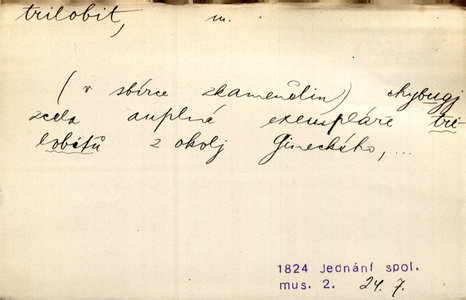 trilobit, m.
(v sbírce zkamenělin) chybugj
zcela auplné exempláře tri-
lobitů z okolj Gineckého, ...
1824 Jednání spol.
mus. 2. 24. 7.